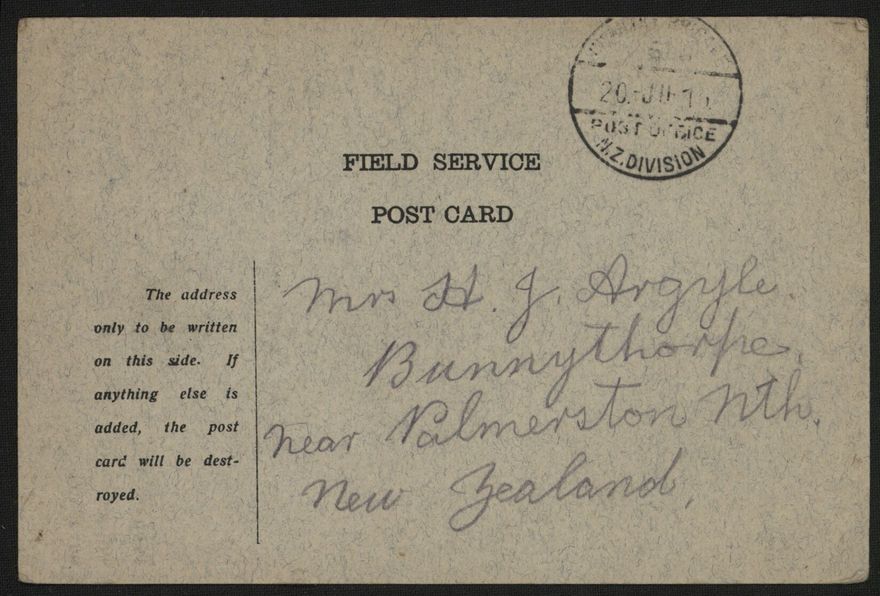 20. JU 1
POST OFFICE
N.Z. DIVISION
FIELD SERVICE
POST CARD
The address
only to be written
on this side. If
anything else is
added, the post
card will be dest-
royed.
Mrs H. J. Argyle.
Bunnythorpe,
near Palmerston Nth.
New Zealand,